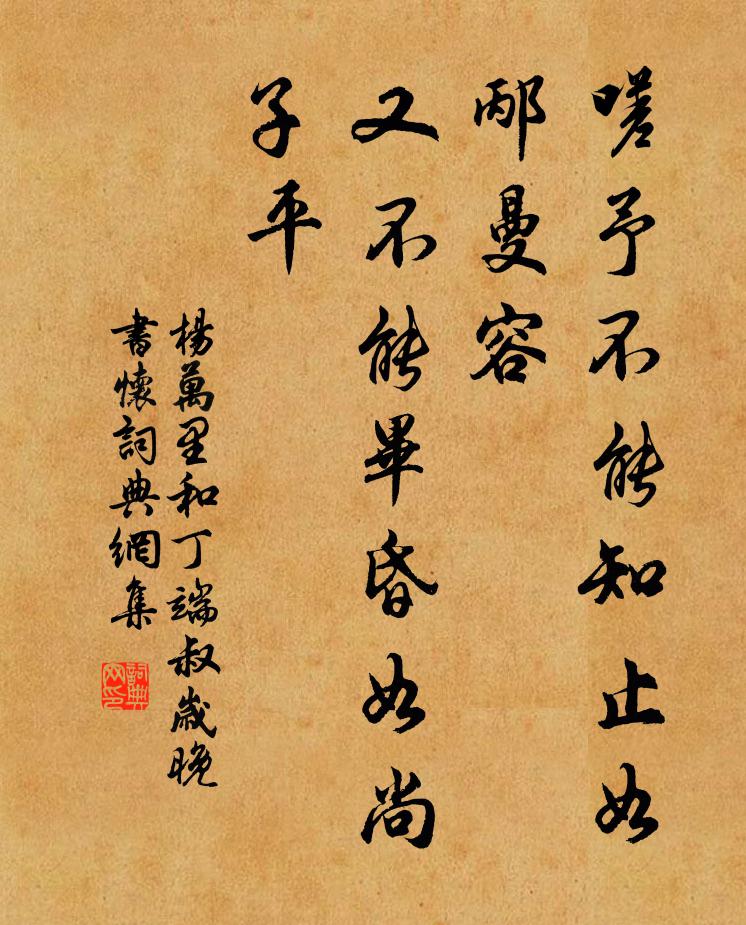 嗟予不能知止如
邴曼容
又不能畢昏如尚
子平
楊萬里和丁端叔歲晚
書懷詞典網集
詞典
网印